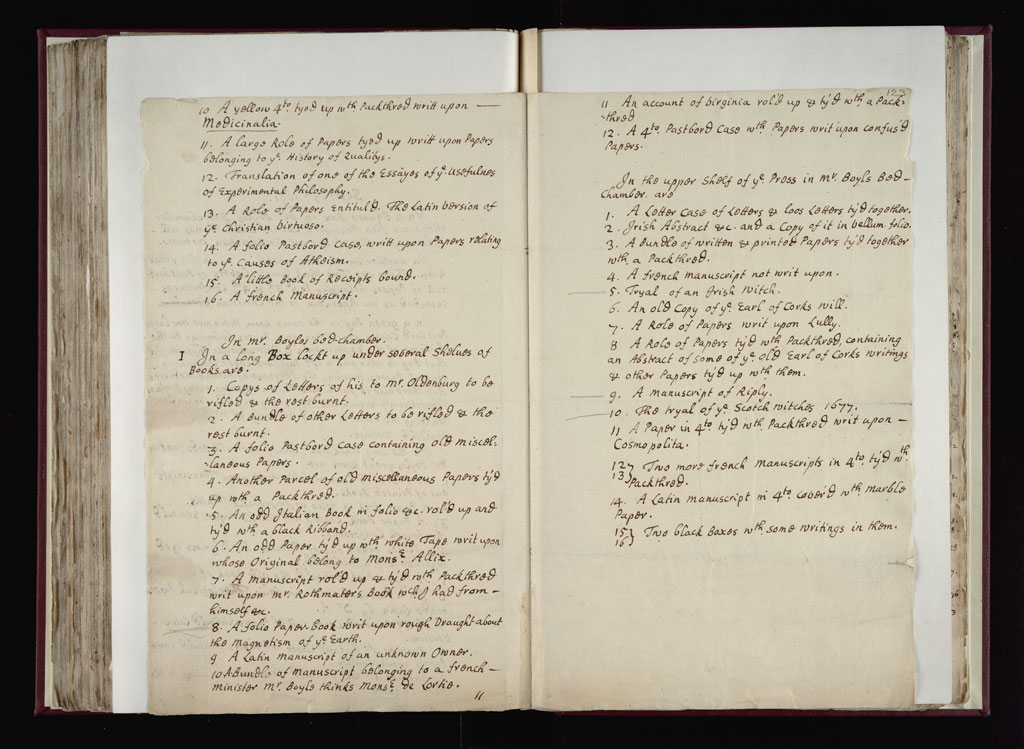 10 A yellow 4to tyed up wth Packthred writt upon —
Medicinalia.
11. A large Role of Papers tyed up writt upon Papers
belonging to ye History of Qualitys.
12. Translation of one of the Essayes of ye Usefulnes
of Experimental Philosophy.
13. A Role of Papers Entituled. The Latin version of
ye Christian virtuoso.
14. A folio Pastbord case, writt upon Papers relating
to ye Causes of Atheism.
15. A little Book of Receipts bound.
16. A french Manuscript.
In mr. Boyles bed-chamber.
I In a long Box lockt up under several Shelves of
Books are.
1. Copys of Letters of his to Mr. Oldenburg to be
rifled & the rest burnt.
2. A Bundle of other Letters to be rifled & the
rest burnt.
3. A folio Pastbord case containing old miscel-
-laneous Papers.
4. Another Parcel of old miscellaneous Papers ty'd
up wth a Packthred.
5. An odd Italian Book in folio &c. rol'd up and
ty'd wth a black Ribband.
6. An odd Paper ty'd up wth white Tape writ upon
whose Original belong to Monsr. Allix.
7. A manuscript rol'd up & ty'd wth Packthred
writ upon mr. Rothmaters Book wch I had from —
himself &c.
8. A folio Paper-Book writ upon rough Draught about
the magnetism of ye Earth.
9 A Latin manuscript of an unknown Owner.
10 A Bundle of manuscript belonging to a french —
minister Mr. Boyle thinks Monsr. de Lortie.
11
11 An account of Virginia rol'd up & ty'd wth a Pack-
-thred
12. A 4to. Pastbord Case wth Papers writ upon confus'd
Papers.
In the upper Shelf of ye Press in Mr. Boyls Bed-
chamber. are
1. A Letter case of Letters & loos Letters ty'd together.
2. Irish Abstract &c. and a Copy of it in vellum folio.
3. A Bundle of written & printed Papers ty'd together
wth a Packthred.
4. A french manuscript not writ upon.
5. Tryal of an Irish Witch.
6. An old Copy of ye Earl of Corks will.
7. A Role of Papers writ upon Lully.
8 A Role of Papers ty'd wth Packthred, containing
an Abstract of some of ye old Earl of Corks writings
& other Papers ty'd up wth them.
9. A manuscript of Riply.
10. The tryal of ye Scotch witches 1677.
11 A Paper in 4to ty'd wth Packthred writ upon —
Cosmopolita.
12} Two more french Manuscripts in 4to. ty'd wth
13} Packthred.
14. A Latin manuscript in 4to cover'd wth marble
Paper.
15} Two black Boxes wth some writings in them.
16}